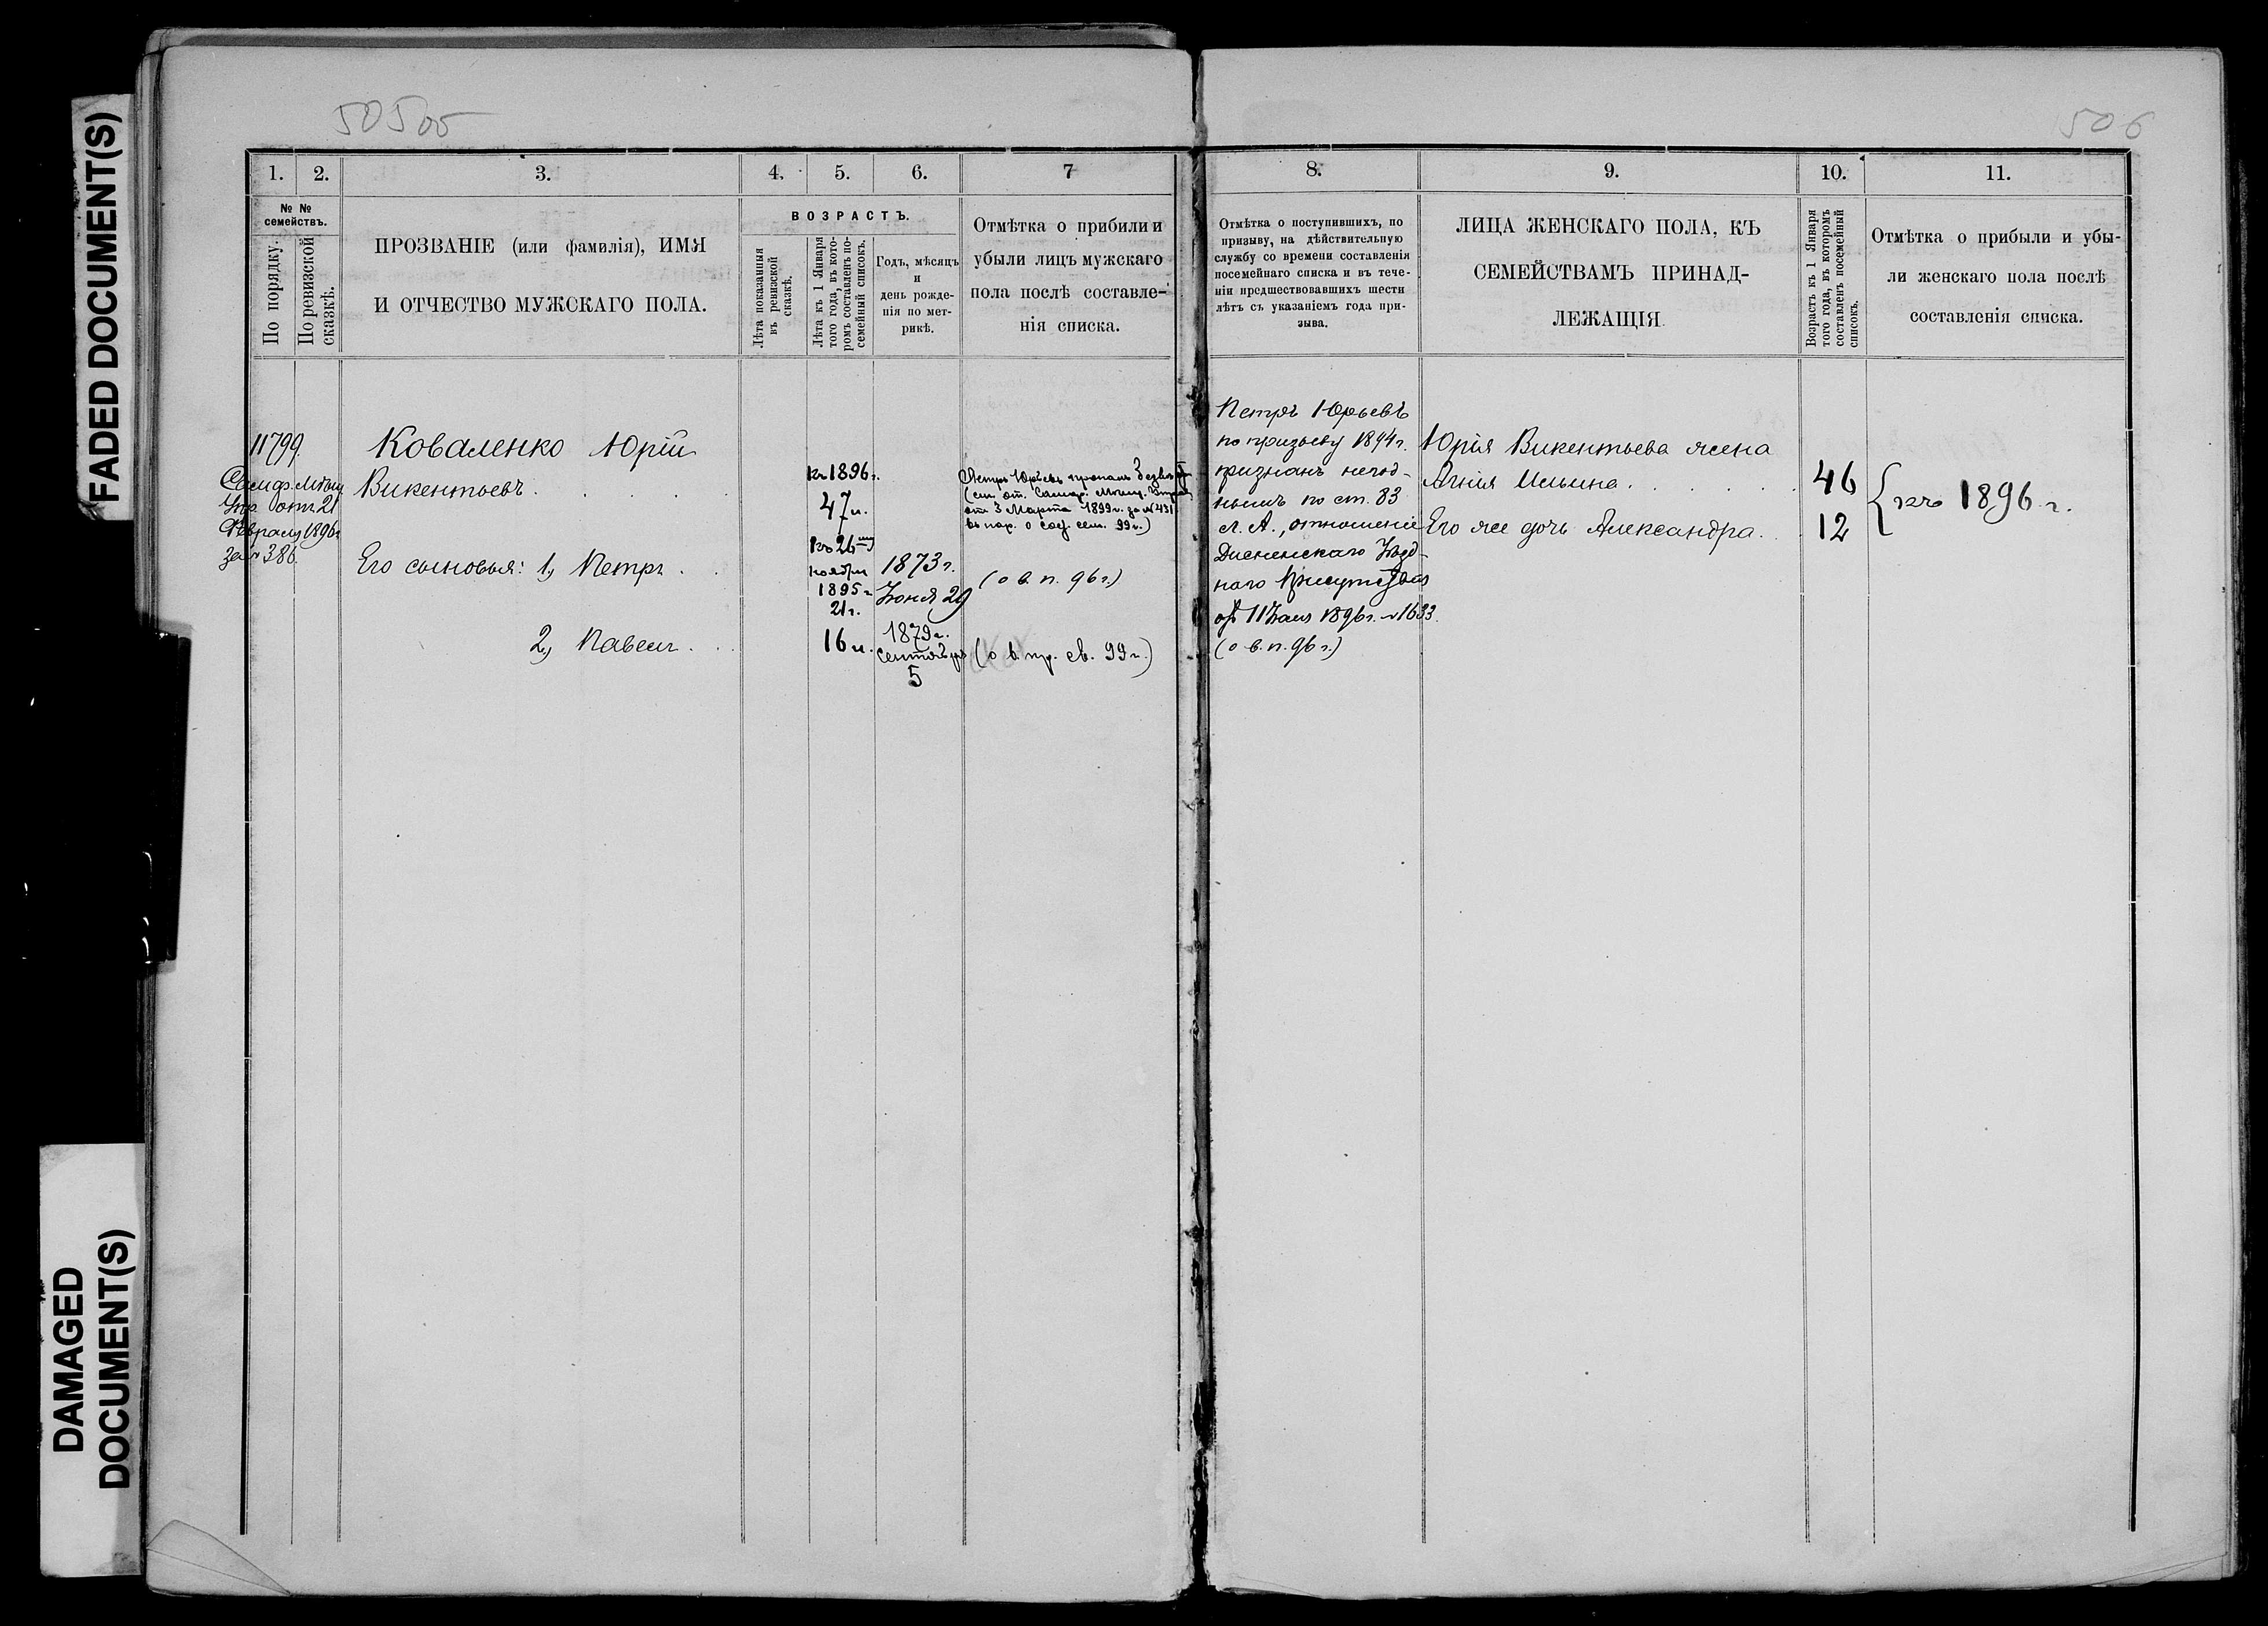 FADED DOCUMENT(S)
DAMAGED
DOCUMENT(S)
505 05
1. 2. 3. 4. 5. 6. 7
№ №
семействъ.
По порядку.
По ревизской
сказкѣ.
ПРОЗВАНІЕ (или фамилія), ИМЯ
И ОТЧЕСТВО МУЖСКАГО ПОЛА.
ВОЗРАСТЪ.
Лѣта показанныя
въ ревизской
сказкѣ.
Лѣта къ 1 Января
того года, въ кото-
ромъ составленъ по-
семейный списокъ.
Годъ, мѣсяцъ
и
день рожде-
нія по мет-
рикѣ.
Отмѣтка о прибыли и
убыли лицъ мужскаго
пола послѣ составле-
нія списка.
11799.
Самар. Мѣщ.
Упр. отъ 21
Февраля 1896 г.
за № 386.
Коваленко Юрій
Викентьевъ . . . .
Его сыновья: 1, Петръ . .
2, Павелъ . . .
къ 1896 г.
47 л.
къ 26му
ноября
1895 г.
21 г.
16 л.
1873 г.
Іюня 29
1879 г.
Сентября
5
Петръ Юрьевъ пропалъ безвѣст
(см. от. Самар. Мѣщ. Управ.
отъ 3 Марта 1899 г. за № 431
въ пар. о сос. сем. 99 г.)
(о в. п. 96 г.)
(о в. пр. св. 99 г.)
506
8. 9. 10. 11.
Отмѣтка о поступившихъ, по
призыву, на дѣйствительную
службу со времени составленія
посемейнаго списка и въ тече-
ніи предшествовавшихъ шести
лѣтъ съ указаніемъ года при-
зыва.
ЛИЦА ЖЕНСКАГО ПОЛА, КЪ
СЕМЕЙСТВАМЪ ПРИНАД-
ЛЕЖАЩІЯ
Возрастъ къ 1 Января
того года, въ которомъ
составленъ посемейный
списокъ.
Отмѣтка о прибыли и убы-
ли женскаго пола послѣ
составленія списка.
Петръ Юрьевъ
по призыву 1894 г.
признанъ негод-
нымъ по ст. 83
л. А., отношеніе
Дисненскаго Уѣзд-
наго Присутствія
отъ 11 Мая 1896 г. № 1633.
(о в. п. 96 г.)
Юрія Викентьева жена
Агнія Ильина . . . . . 46
Его же дочь Александра . . 12
къ 1896 г.